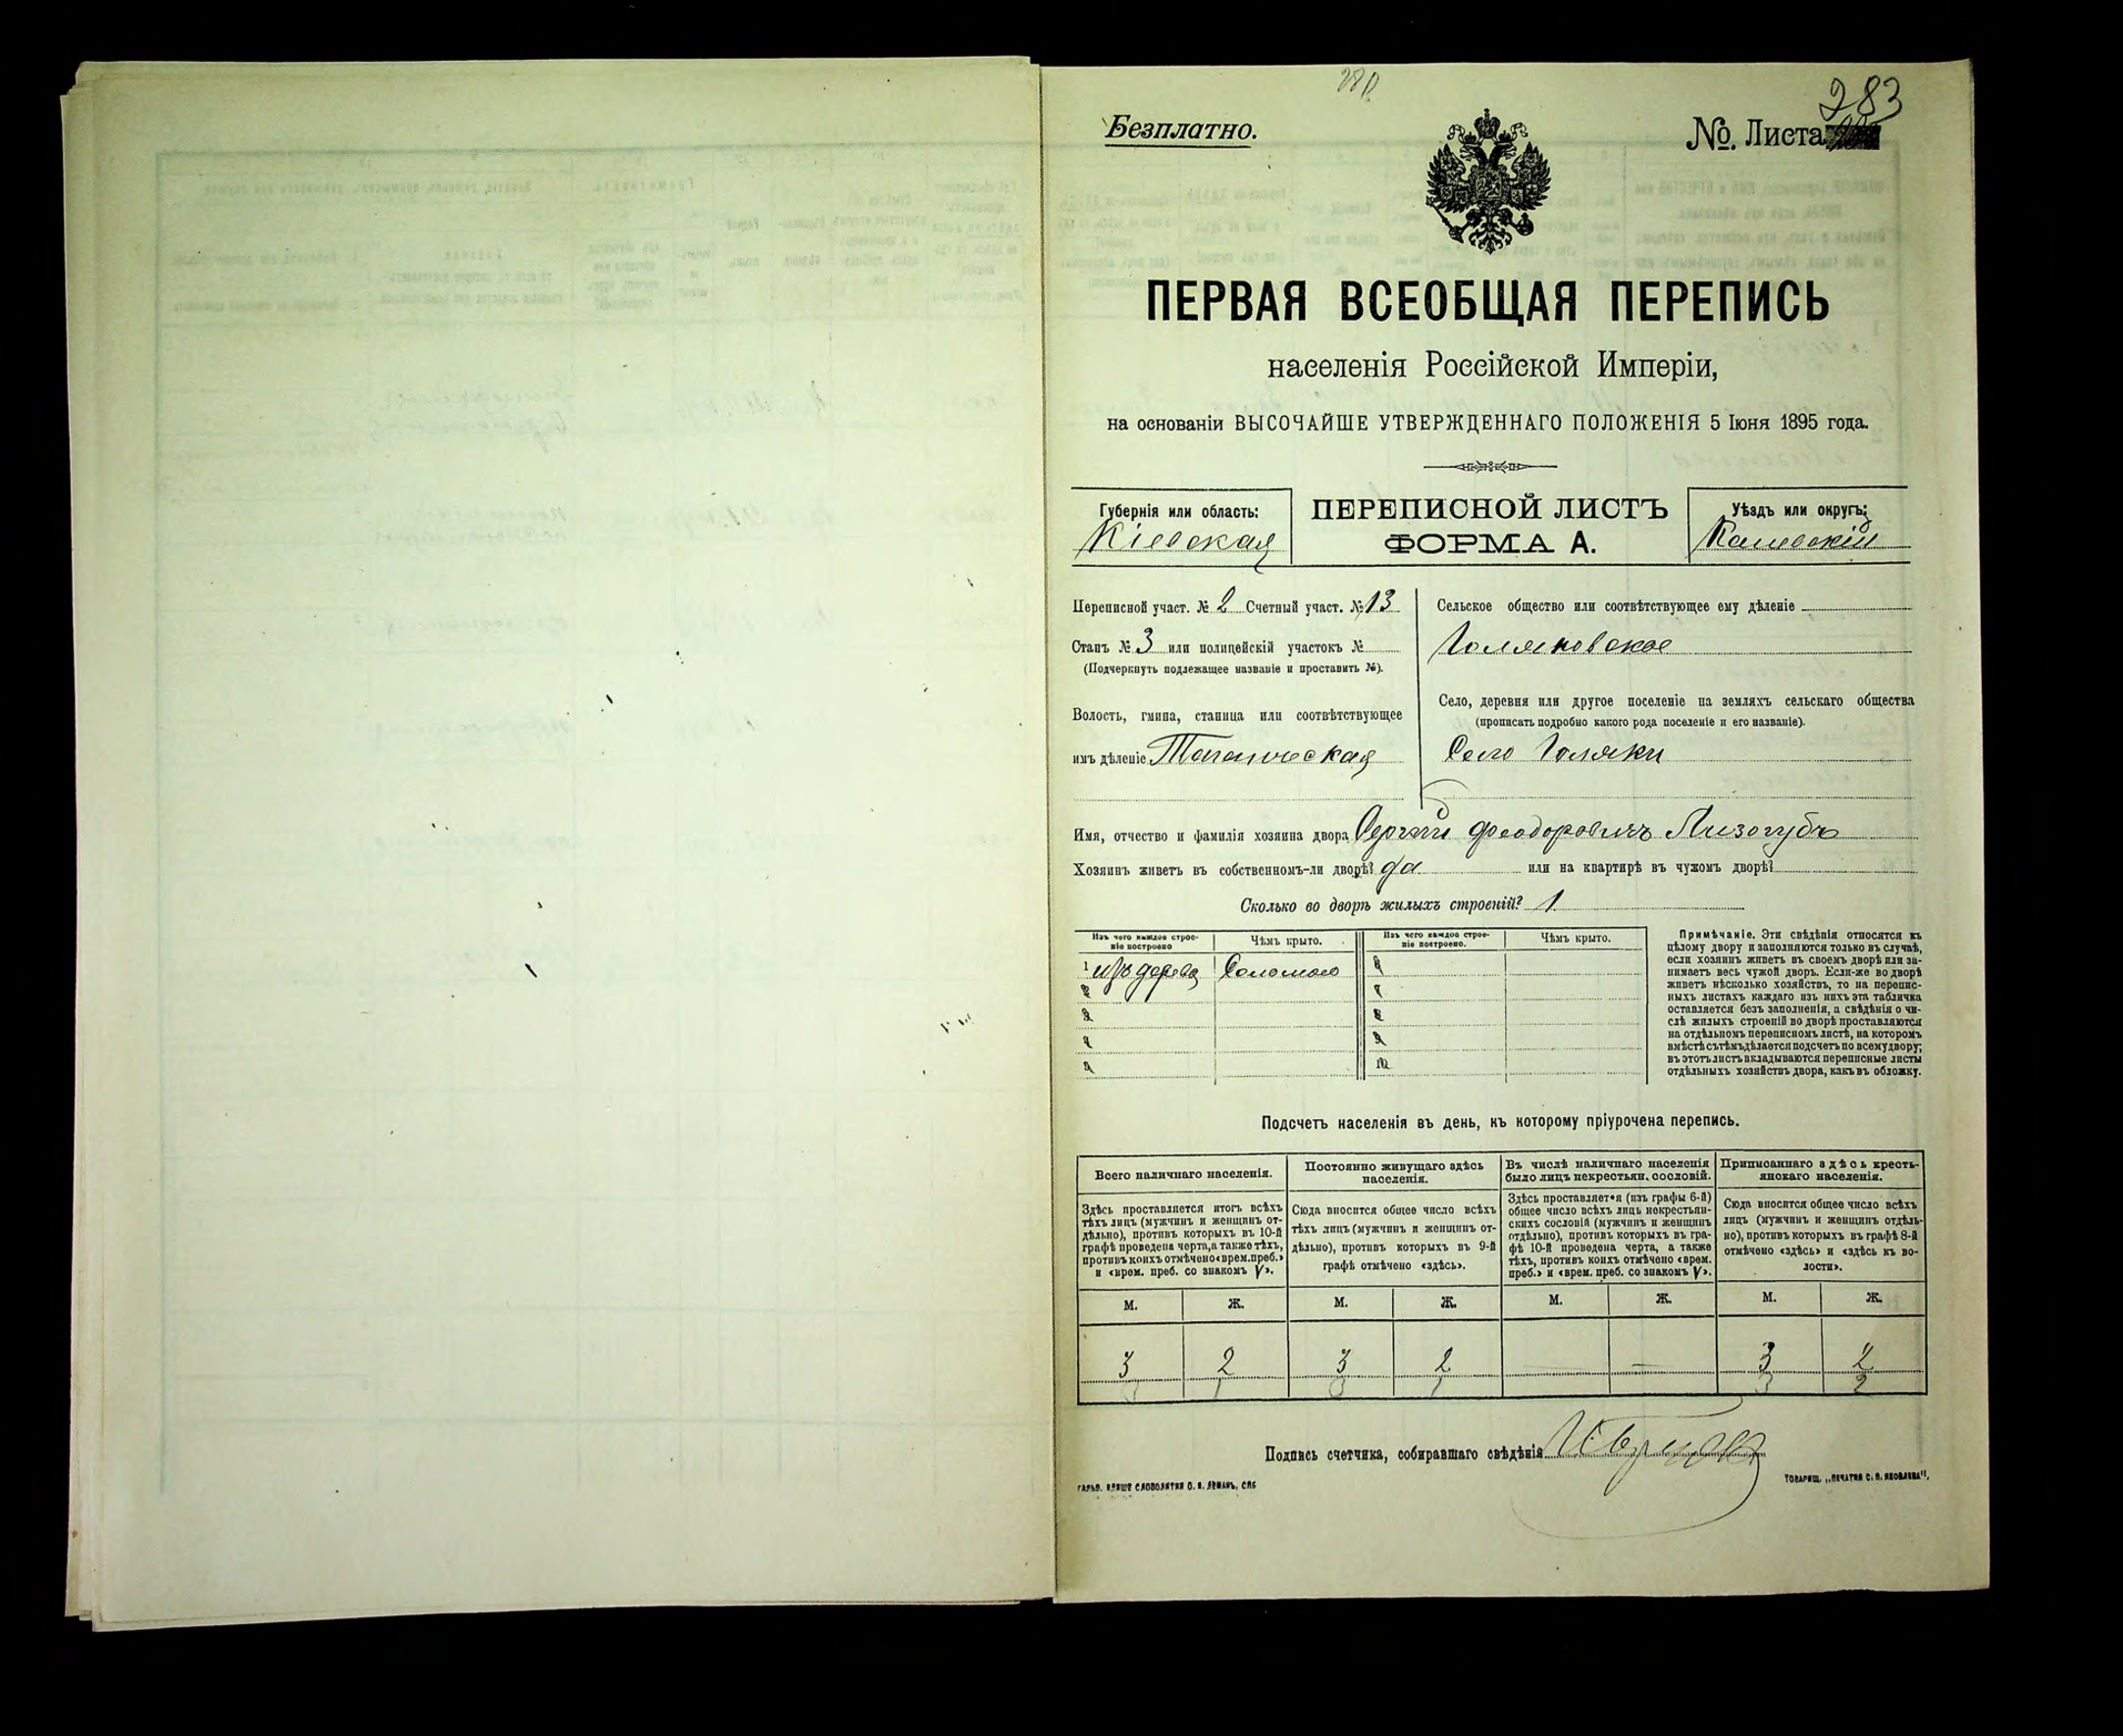 Безплатно.
283
№. Листа
ПЕРВАЯ ВСЕОБЩАЯ ПЕРЕПИСЬ
населенія Россійской Имперіи,
на основаніи ВЫСОЧАЙШЕ УТВЕРЖДЕННАГО ПОЛОЖЕНІЯ 5 Іюня 1895 года.
Губернія или область:
Кіевская
ПЕРЕПИСНОЙ ЛИСТЪ
ФОРМА А.
Уѣздъ или округъ:
Каневскій
Переписной участ. № 2 Счетный участ. № 13
Станъ № 3 или полицейскій участокъ №
(Подчеркнуть подлежащее названіе и проставить №).
Волость, гмина, станица или соотвѣтствующее
имъ дѣленіе
Сельское общество или соотвѣтствующее ему дѣленіе
Голяковское
Село, деревня или другое поселеніе на земляхъ сельскаго общества
(прописать подробно какого рода поселеніе и его названіе).
Село Голяки
Имя, отчество и фамилія хозяина двора Сергій Феодоровичъ Лизогубъ
Хозяинъ живетъ въ собственномъ-ли дворѣ? да или на квартирѣ въ чужомъ дворѣ?
Сколько во дворѣ жилыхъ строеній? 1
Изъ чего каждое строе-
ніе построено
Чѣмъ крыто.
Изъ чего каждое строе-
ніе построено.
Чѣмъ крыто.
1 изъ дерева Соломою 6
2 7
3 8
4 9
5 10
Примѣчаніе. Эти свѣдѣнія относятся къ
цѣлому двору и заполняются только въ случаѣ,
если хозяинъ живетъ въ своемъ дворѣ или за-
нимаетъ весь чужой дворъ. Если-же во дворѣ
живетъ нѣсколько хозяйствъ, то на перепис-
ныхъ листахъ каждаго изъ нихъ эта табличка
оставляется безъ заполненія, а свѣдѣнія о чи-
слѣ жилыхъ строеній во дворѣ проставляются
на отдѣльномъ переписномъ листѣ, на которомъ
вмѣстѣ съ тѣмъ дѣлается подсчетъ по всему двору;
въ этотъ листъ вкладываются переписные листы
отдѣльныхъ хозяйствъ двора, какъ въ обложку.
Подсчетъ населенія въ день, къ которому пріурочена перепись.
Всего наличнаго населенія.
Здѣсь проставляется итогъ всѣхъ
тѣхъ лицъ (мужчинъ и женщинъ от-
дѣльно), противъ которыхъ въ 10-й
графѣ проведена черта, а также тѣхъ,
противъ коихъ отмѣчено «врем. преб.»
и «врем. преб. со знакомъ V».
Постоянно живущаго здѣсь
населенія.
Сюда вносится общее число всѣхъ
тѣхъ лицъ (мужчинъ и женщинъ от-
дѣльно), противъ которыхъ въ 9-й
графѣ отмѣчено «здѣсь».
Въ числѣ наличнаго населенія
было лицъ некрестьян. сословій.
Здѣсь проставляется (изъ графы 6-й)
общее число всѣхъ лицъ некрестьян-
скихъ сословій (мужчинъ и женщинъ
отдѣльно), противъ которыхъ въ гра-
фѣ 10-й проведена черта, а также
тѣхъ, противъ коихъ отмѣчено «врем.
преб.» и «врем. преб. со знакомъ V».
Приписаннаго здѣсь кресть-
янскаго населенія.
Сюда вносится общее число всѣхъ
лицъ (мужчинъ и женщинъ отдѣль-
но), противъ которыхъ въ графѣ 8-й
отмѣчено «здѣсь» и «здѣсь къ во-
лости».
М. Ж. М. Ж. М. Ж. М. Ж.
3 2 3 2 — — 3 2
3 2
Подпись счетчика, собиравшаго свѣдѣнія
ТОВАРИЩ. „ПЕЧАТНЯ С. П. ЯКОВЛЕВА".